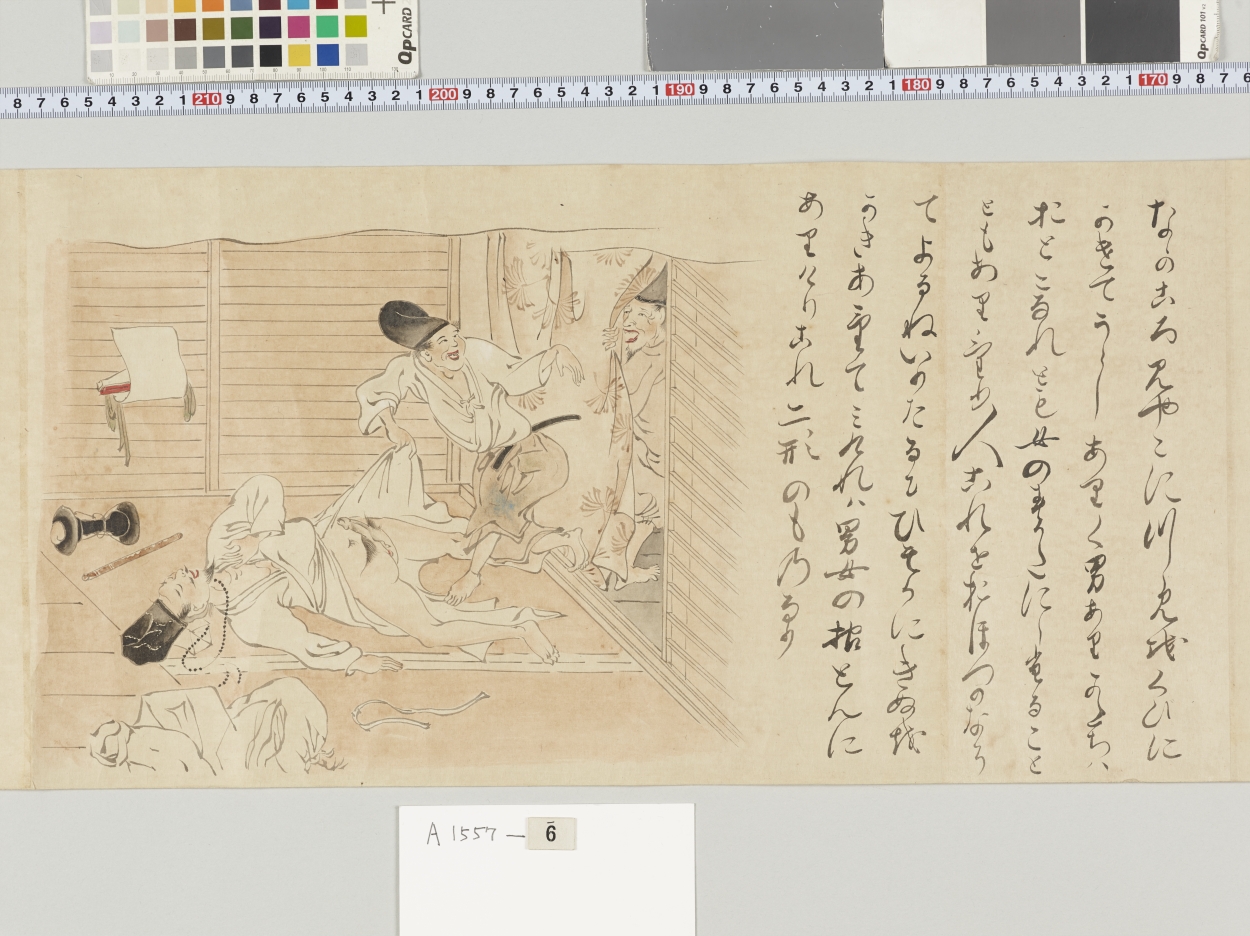 なかころ見やこにつゝみをくひに
かけてうらしありく男ありかたちハ
おとこなれとも女のすかたににたること
ともありけり人これをおほつかなかり
てよるねいりたるにひそかにきぬを
かきあけてミけれハ男女の根ともに
ありけりこれ二形のものなり
QpCARD
QpCARD 101
8 7 6 5 4 3 2 1 210 9 8 7 6 5 4 3 2 1 200 9 8 7 6 5 4 3 2 1 190 9 8 7 6 5 4 3 2 1 180 9 8 7 6 5 4 3 2 1 170 9 8 7 6
A 1557 — 6